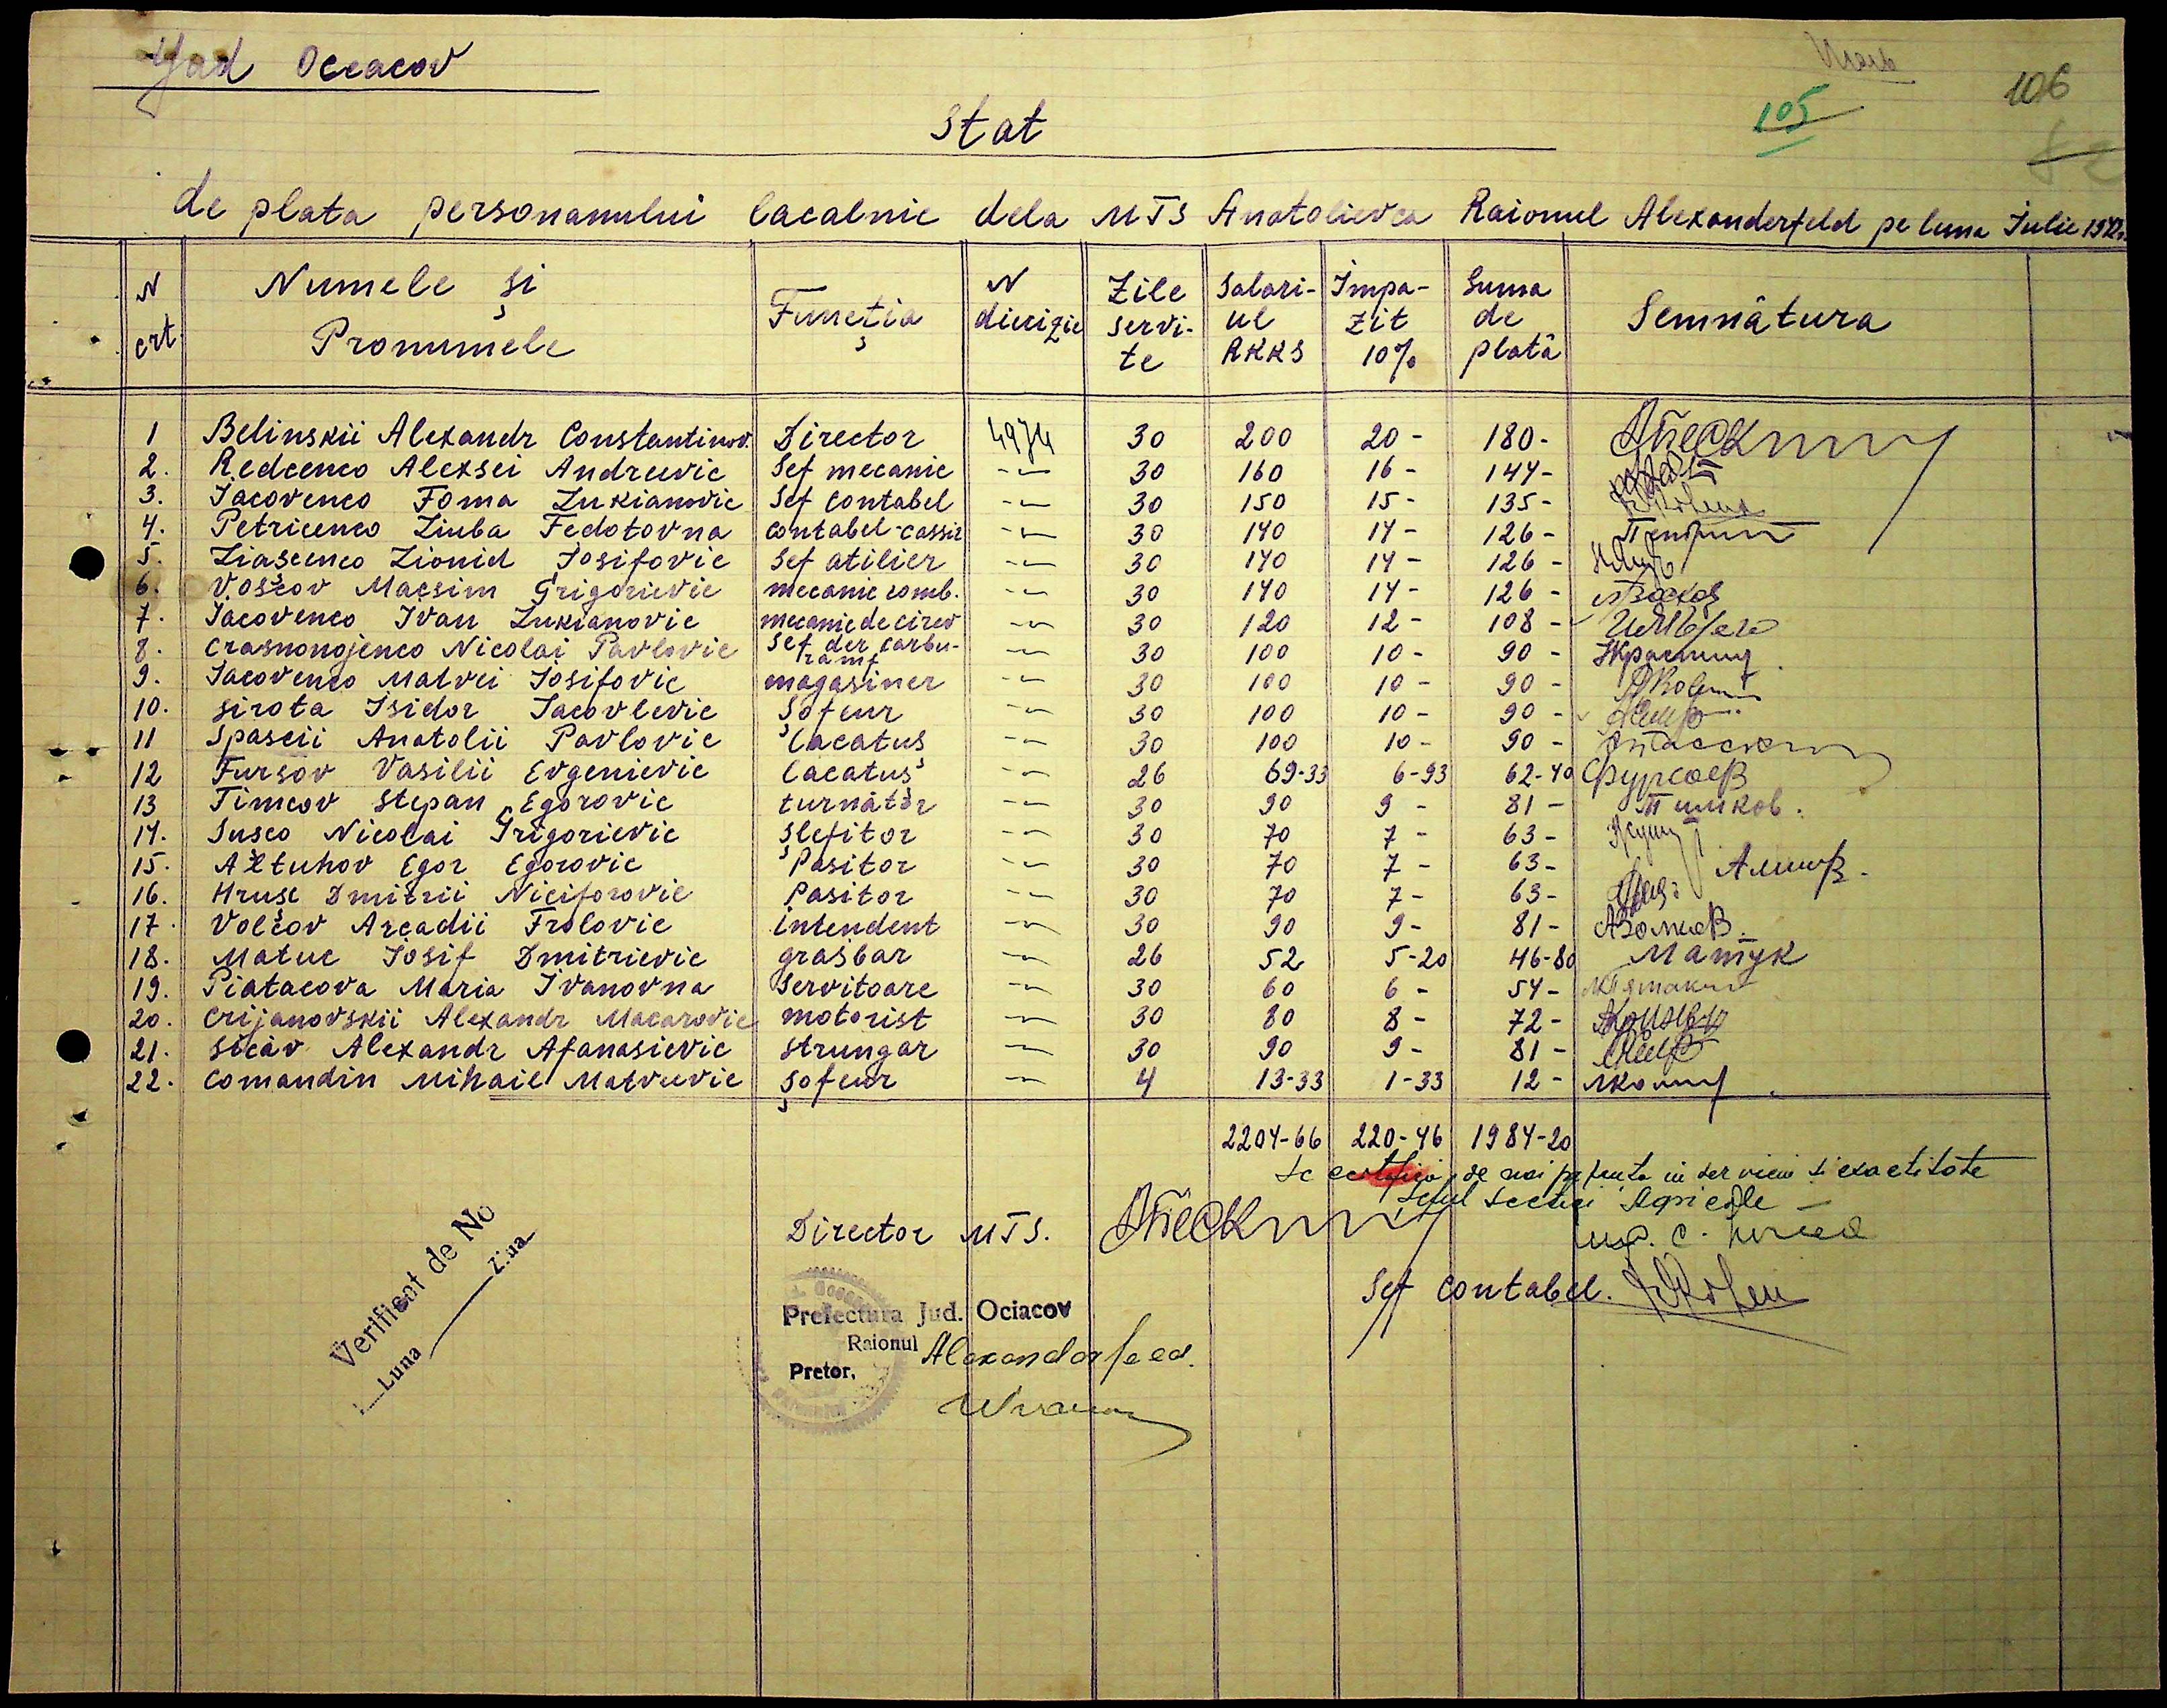 Jad Oceacov
106
105
Stat
de plata personanului lacalnic dela MTS Anatolievca Raionul Alexanderfeld pe luna Julie 1942
N crt. Numele și Pronumele Funcția N dicizie Zile servite Salariul RKKS Împazit 10% Suma de plată Semnătura
1 Belinskii Alexandr Constantinov. Director 4974 30 200 20- 180-
2. Redcenco Alexsei Andreevic Sef mecanic -〃- 30 160 16- 144-
3. Jacovenco Foma Lukianovic Sef contabel -〃- 30 150 15- 135-
4. Petricenco Liuba Fedotovna contabel-cassir -〃- 30 140 14- 126-
5. Liascenco Lionid Josifovic Sef atilier -〃- 30 140 14- 126-
6. Voșcov Macsim Grigorievic mecanic comb. -〃- 30 140 14- 126-
7. Jacovenco Ivan Lukianovic mecanic de cirev -〃- 30 120 12- 108-
8. Crasnonojenco Nicolai Pavlovic Sef der carburamt -〃- 30 100 10- 90-
9. Jacovenco Matvei Josifovic magasiner -〃- 30 100 10- 90-
10. Sirota Isidor Jacovlevic Șofeur -〃- 30 100 10- 90-
11 Spascii Anatolii Pavlovic Lacatus -〃- 30 100 10- 90-
12 Fursov Vasilii Evgenievic lacatuș -〃- 26 69-33 6-93 62-40 Фурсов
13 Timcov Stepan Egorovic turnător -〃- 30 90 9- 81- Тимков.
14. Susco Nicolai Grigorievic Șlefitor -〃- 30 70 7- 63-
15. Altuhov Egor Egorovic Pasitor -〃- 30 70 7- 63-
16. Hrusc Dmitrii Niciforovic Pasitor -〃- 30 70 7- 63-
17. Volcov Arcadii Frolovic intendent -〃- 30 90 9- 81-
18. Matuc Josif Dmitrievic grasbar -〃- 26 52 5-20 46-80 Матук
19. Piatacova Maria Ivanovna Servitoare -〃- 30 60 6- 54-
20. Crijanovskii Alexandr Macarovic motorist -〃- 30 80 8- 72-
21. Sicav Alexandr Afanasievic Strungar -〃- 30 90 9- 81-
22. Comandin Mihail Matveevic șofeur -〃- 4 13-33 1-33 12-
2204-66 220-46 1984-20
Se certifica de noi in serviciu si exactitate
Șeful Secției Agricole
Director MTS.
Sef contabel.
Verificat de No
Luna Ziua
Prefectura Jud. Ociacov
Raionul Alexandorfeed.
Pretor,